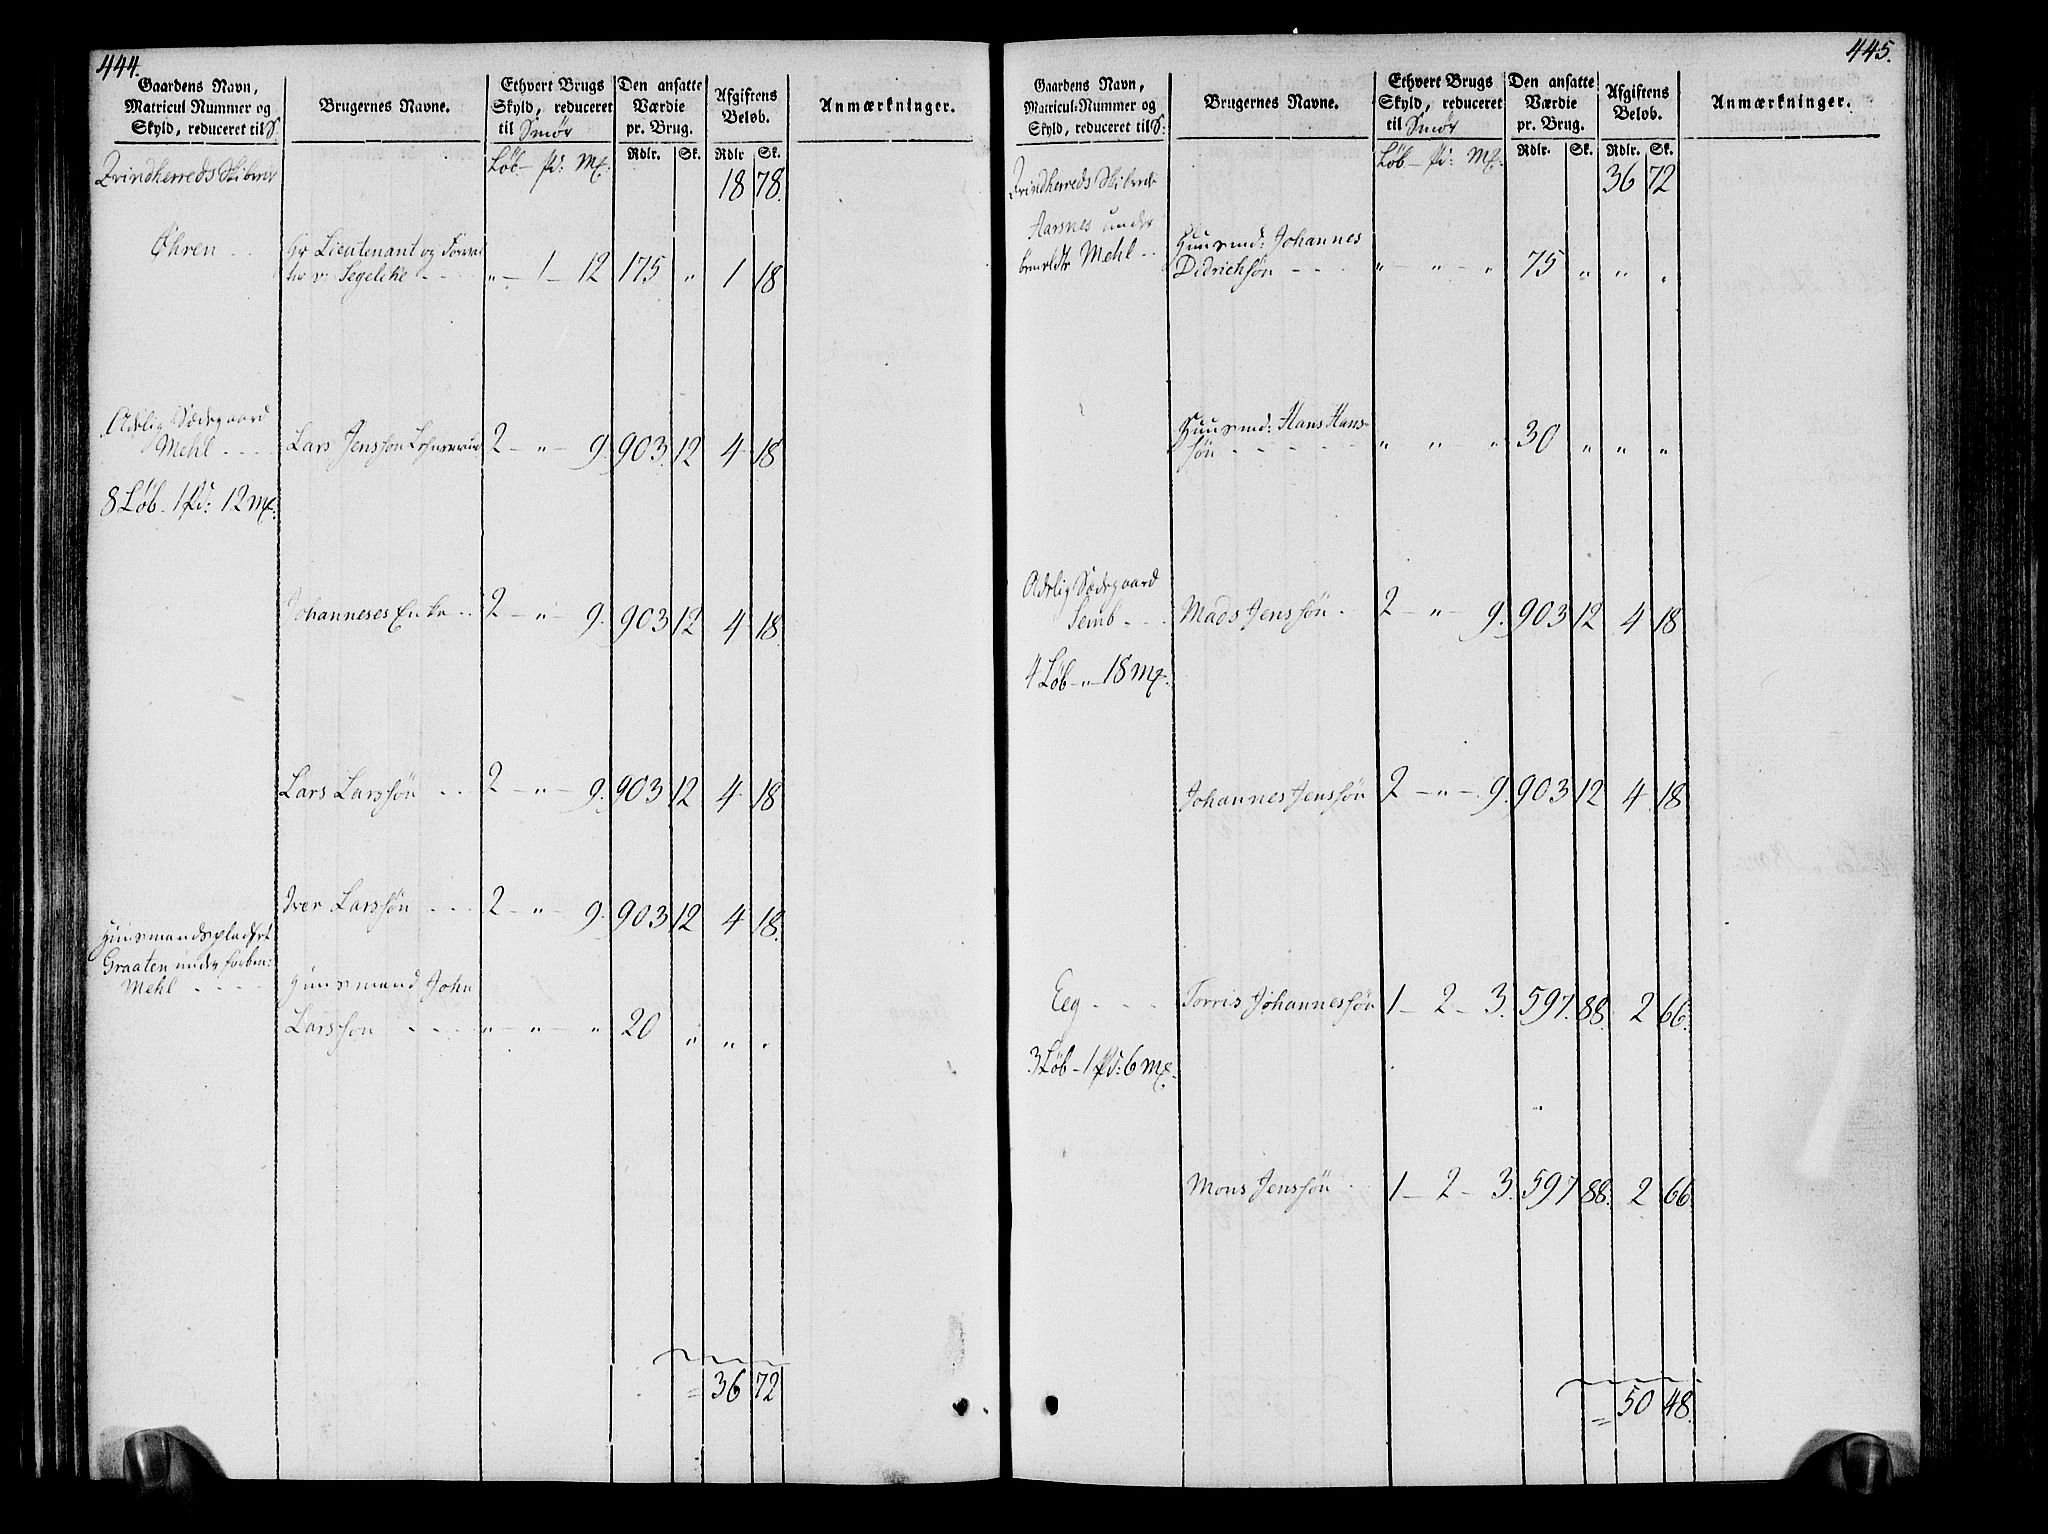 444.
Gaardens Navn, Matricul Nummer og Skyld, reduceret til S: | Brugernes Navne. | Ethvert Brugs Skyld, reduceret til Smør | Den ansatte Værdie pr. Brug. | Afgiftens Beløb. | Anmærkninger.
Løb - Pd: Mk: | Rdlr. | Sk. | Rdlr | Sk.
Qvindherreds Skibrede 18 78.
Øhren Hr Lieutenant og
v: Segelcke " - 1 - 12 175 " 1 18
Adelig Sædegaard
Mehl Lars Jenssøn 2 - " - 9. 903. 12 4 18
8 Løb - 1 Pd: 12 Mk:
Johanneses Enke 2 - " - 9. 903 12 4 18.
Lars Larssøn 2 - " - 9. 903 12 4 18
Iver Larssøn 2 - " - 9. 903 12 4 18.
Huusmandspladset
Graaten under
Mehl Huusmand John
Larssøn " - " - " 20 " " "
= 36 72
445.
Gaardens Navn, Matricul-Nummer og Skyld, reduceret til S: | Brugernes Navne. | Ethvert Brugs Skyld, reduceret til Smør | Den ansatte Værdie pr. Brug. | Afgiftens Beløb. | Anmærkninger.
Løb - Pd: Mk: | Rdlr. | Sk. | Rdlr. | Sk.
Qvindherreds Skibrede 36 72
Aarsnes under
Mehl Huusmd: Johannes
Didrichsøn " - " - " 75 " " "
Huusmd: Hans Hans-
søn " " " 30 " " "
Adelig Sædegaard
Semb Mads Jenssøn 2 - " - 9. 903 12 4 18
4 Løb - " - 18 Mk.
Johannes Jenssøn 2 - " - 9. 903 12 4 18
Eeg Torris Johannessøn 1 - 2 - 3. 597. 88. 2 66.
3 Løb - 1 Pd: 6 Mk.
Mons Jenssøn 1 - 2 - 3. 597 88. 2 66
= 50 48.